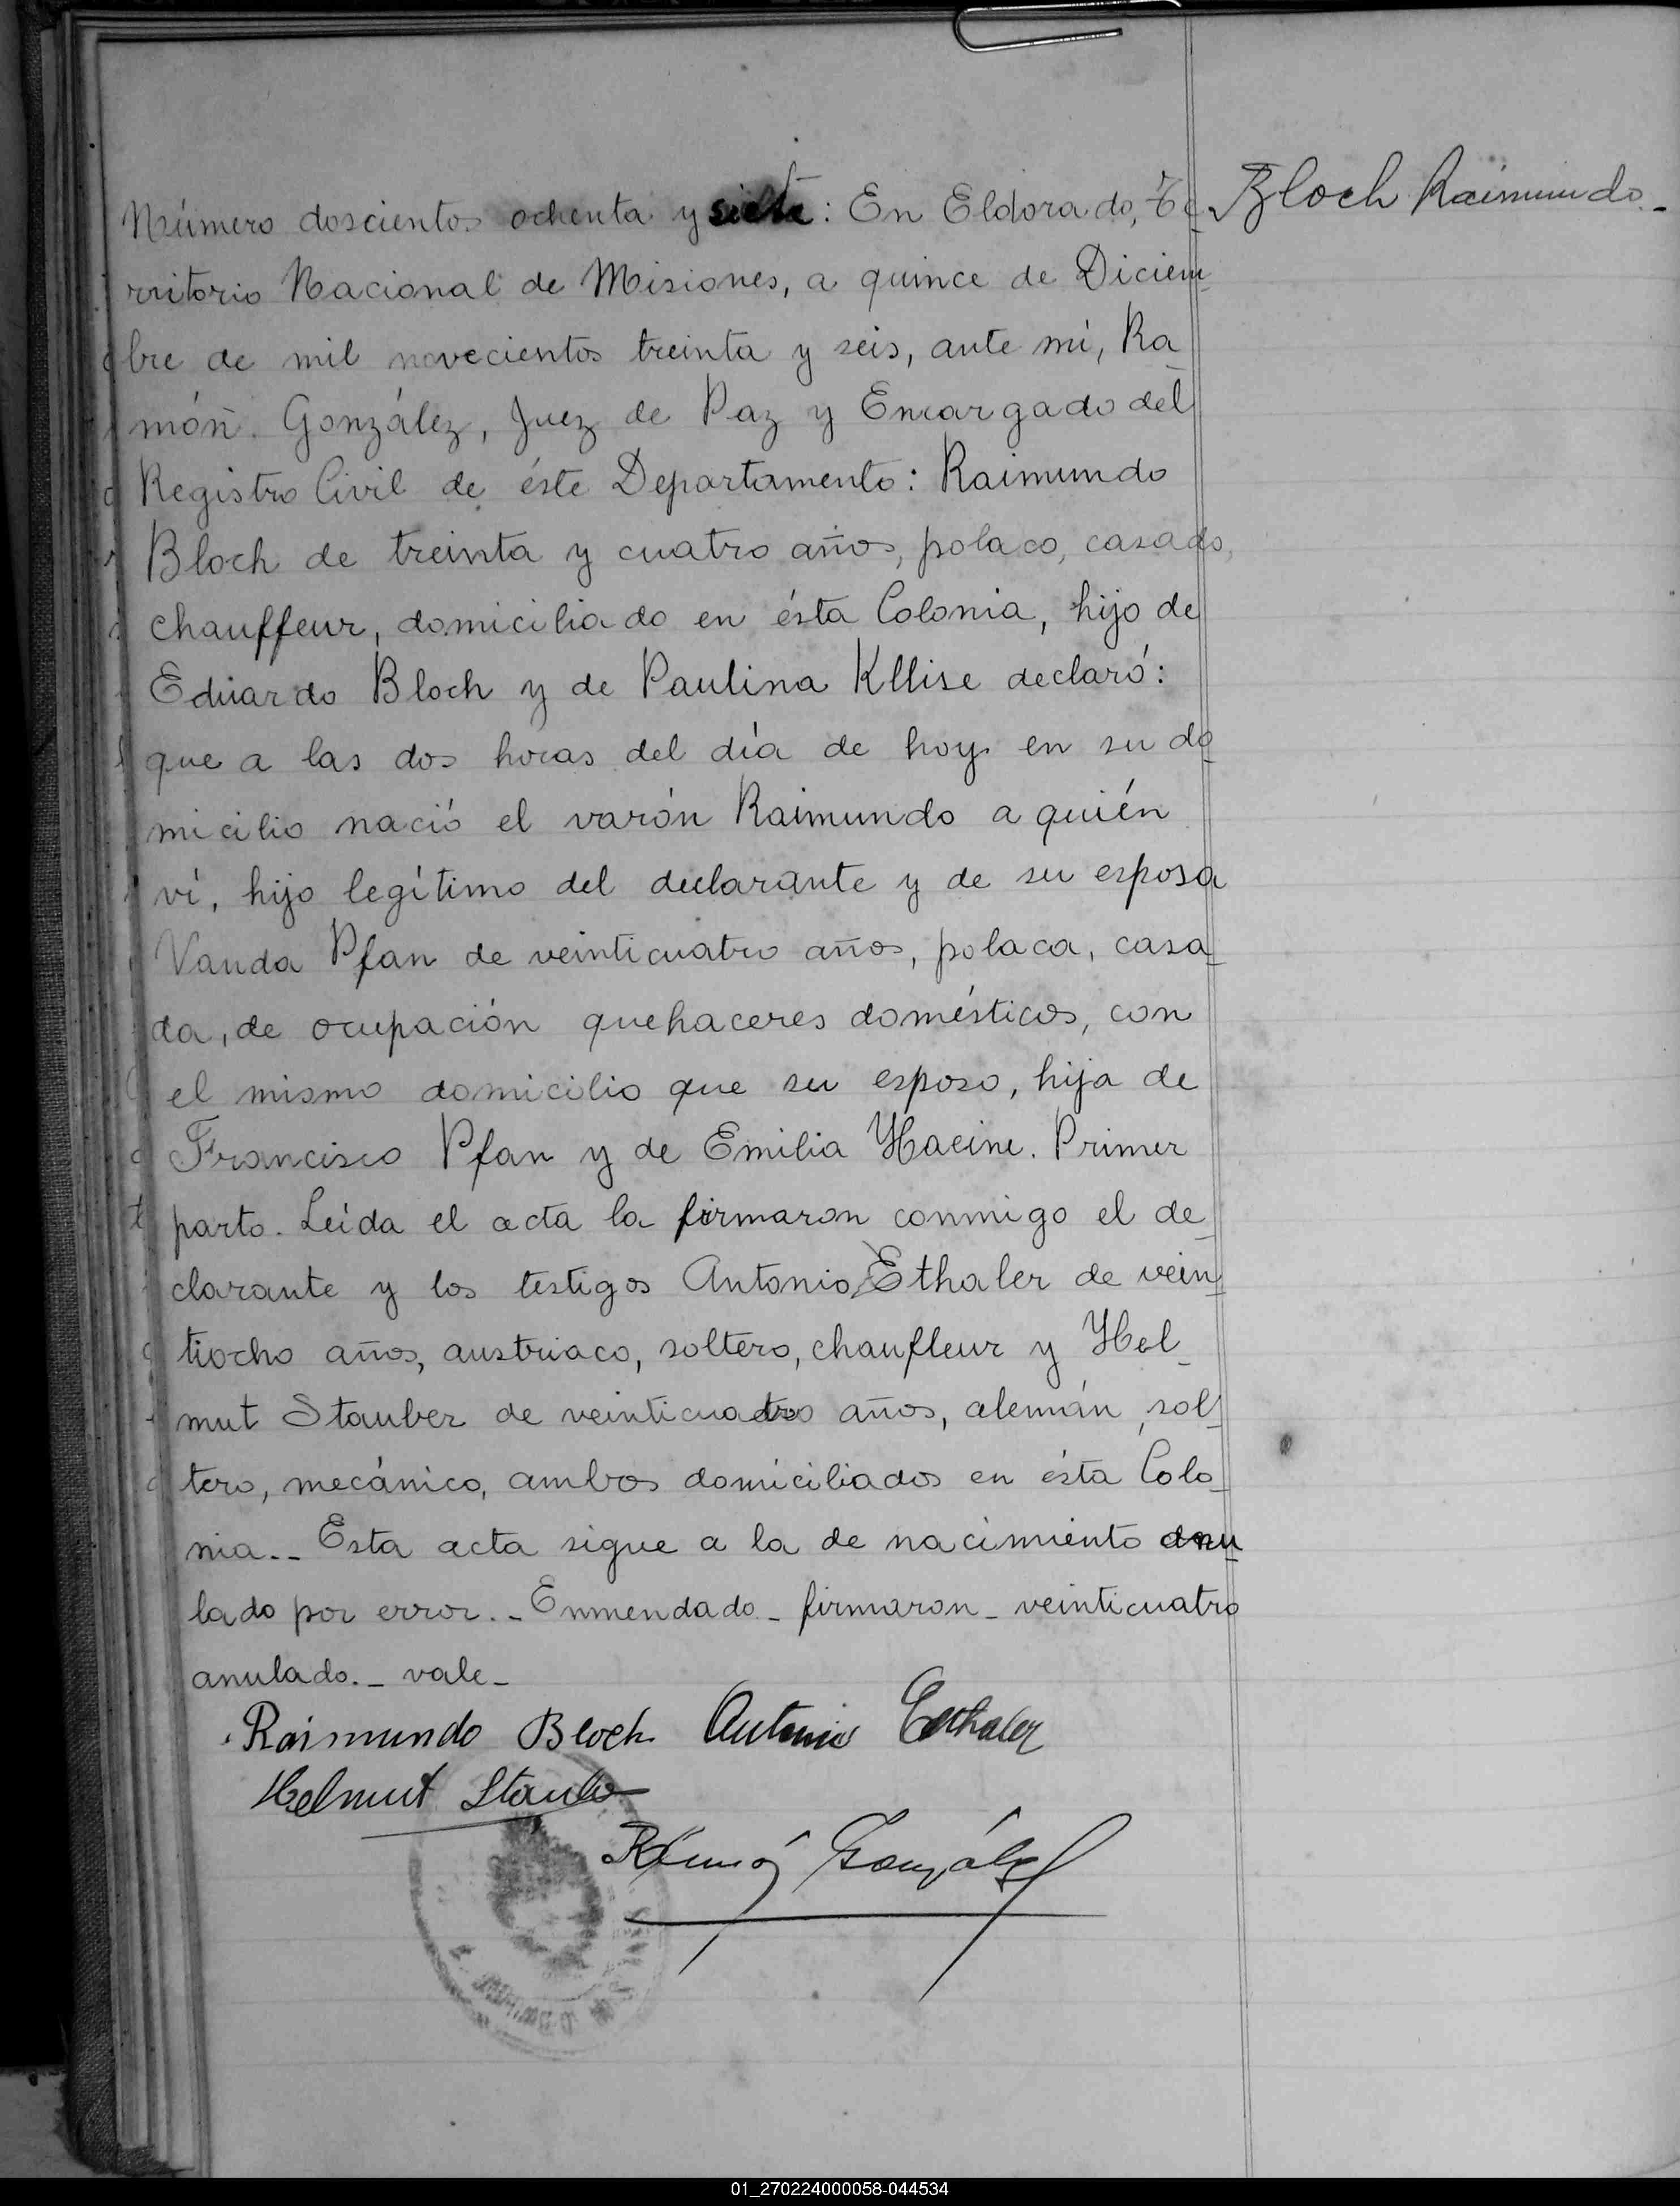 Número doscientos ochenta y siete: En Eldorado, Te-
rritorio Nacional de Misiones, a quince de Diciem-
bre de mil novecientos treinta y seis, ante mí, Ra-
món González, Juez de Paz y Encargado del
Registro Civil de éste Departamento: Raimundo
Bloch de treinta y cuatro años, polaco, casado,
chauffeur, domiciliado en ésta Colonia, hijo de
Eduardo Bloch y de Paulina Kllise declaró:
que a las dos horas del día de hoy en su do-
micilio nació el varón Raimundo a quién
ví, hijo legítimo del declarante y de su esposa
Vanda Pfan de veinticuatro años, polaca, casa-
da, de ocupación quehaceres domésticos, con
el mismo domicilio que su esposo, hija de
Francisco Pfan y de Emilia Haeine. Primer
parto. Leída el acta la firmaron conmigo el de-
clarante y los testigos Antonio Ethaler de vein-
tiocho años, austriaco, soltero, chaufleur y Hel-
mut Stauber de veinticuatro años, alemán, sol-
tero, mecánico, ambos domiciliados en ésta Colo-
nia.-- Esta acta sigue a la de nacimiento anu-
lado por error.- Enmendado - firmaron - veinticuatro
anulado.- vale-
Bloch Raimundo.-
Raimundo Bloch Antonio
Helmut
Ramón González
01_270224000058-044534